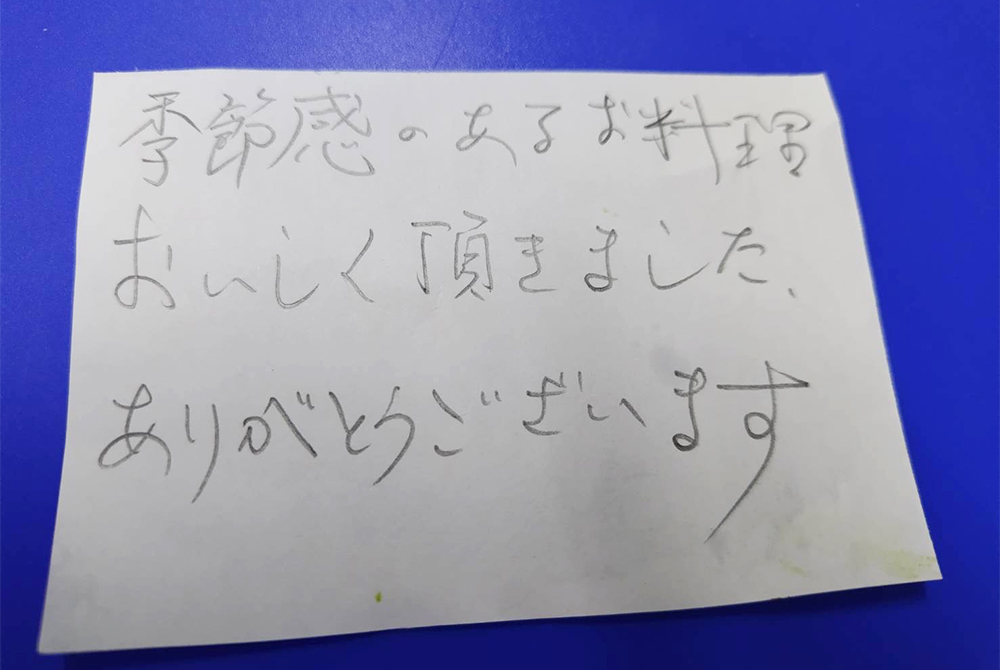 季節感のあるお料理
おいしく頂きました、
ありがとうございます